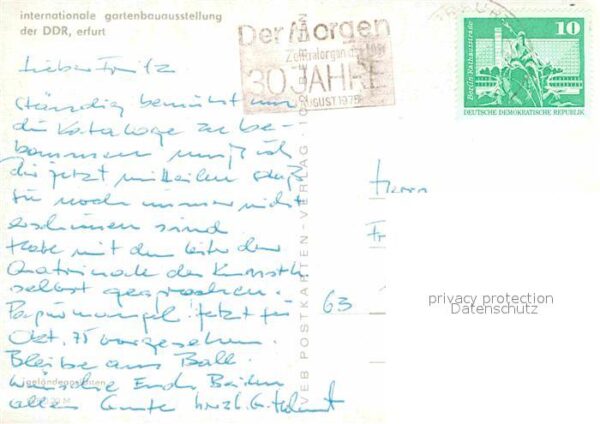 internationale gartenbauausstellung
der DDR, erfurt
Der Morgen
Zentralorgan der LDPD
30 JAHRE
AUGUST 1975
10
Berlin, Rathausstraße
DEUTSCHE DEMOKRATISCHE REPUBLIK
Lieber Fritz
ständig bemüht um
die Kataloge zu be-
kommen muß ich
dir jetzt mitteilen daß
sie noch immer nicht
erschienen sind.
Habe mit dem Leiter der
Quadriennale des Kunsth.
selbst gesprochen.
Papiermangel jetzt für
Okt. 75 vorgesehen.
Bleibe am Ball.
geländeansichten
Wünsche Euch Beiden
alles Gute herzl. G. Helmut
VEB POSTKARTEN-VERLAG
Herrn
Fr
63
privacy protection
Datenschutz